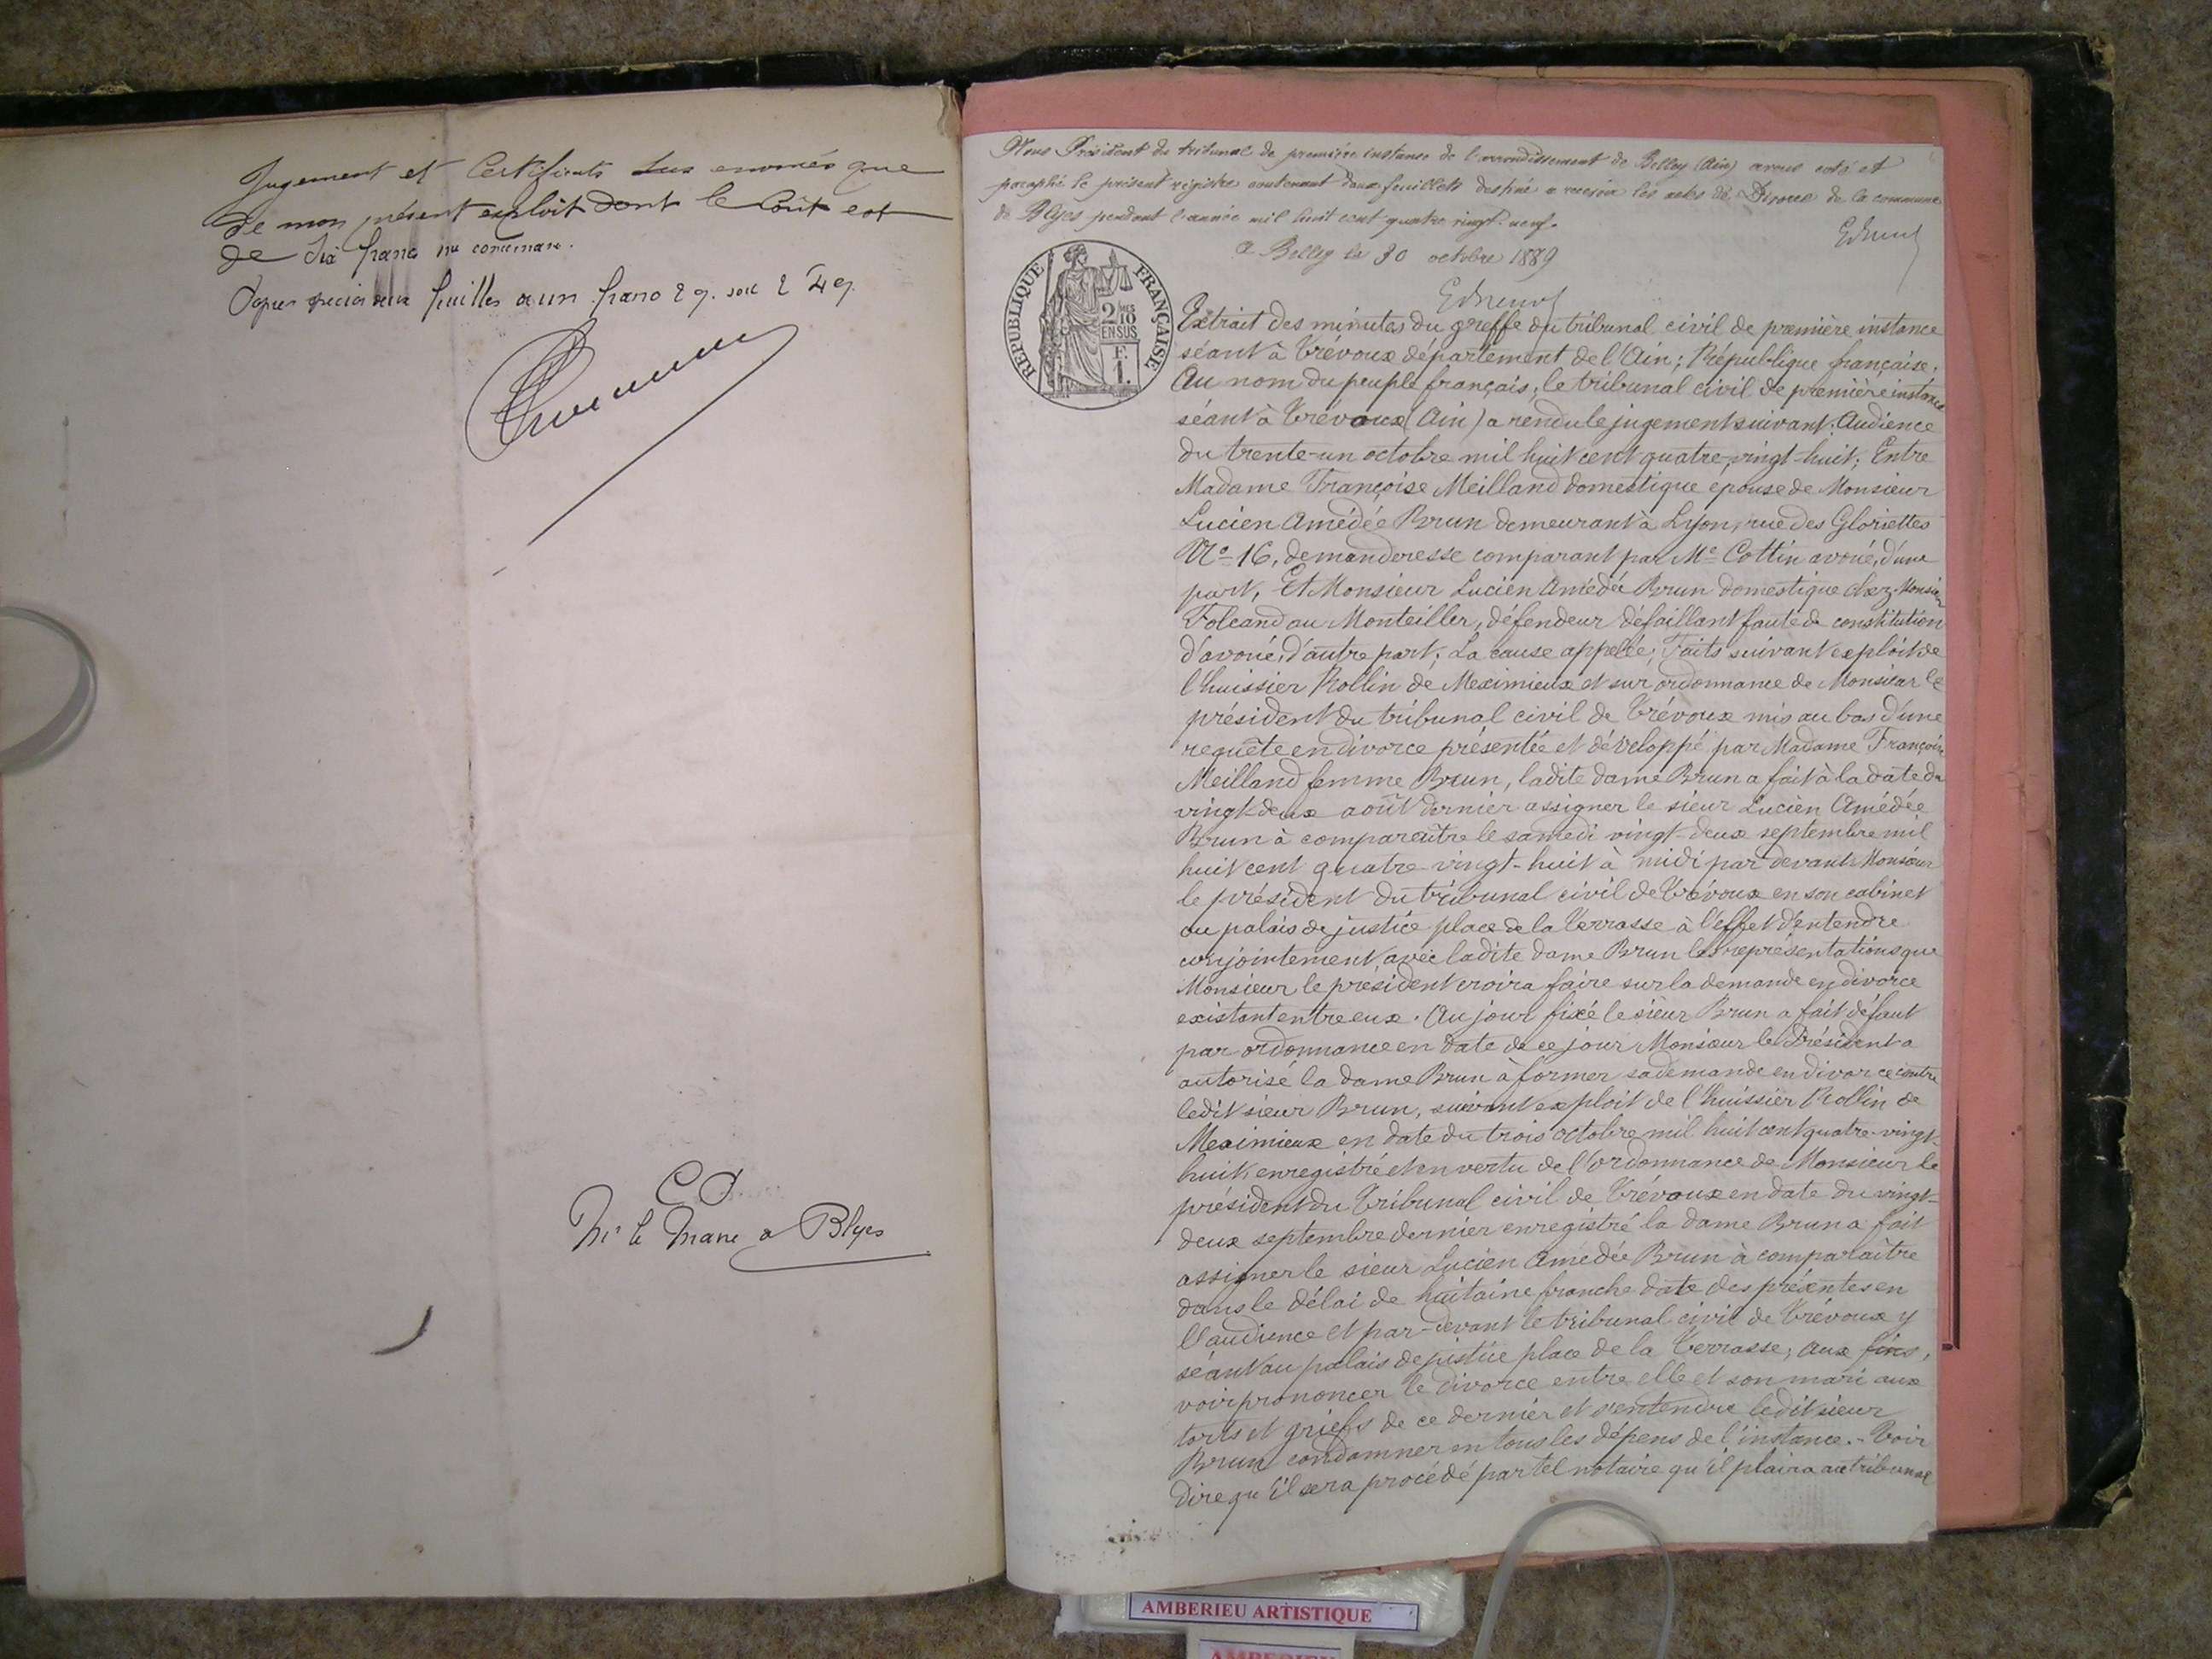 Jugement et Certificats sus énoncés que
de mon présent exploit dont le coût est
de dix francs
feuilles à un franc
Mr le Maire à Blyes
Nous Président du tribunal de première instance de l'arrondissement de Belley (Ain) avons coté et
paraphé le présent régistre contenant deux feuillets destiné à recevoir les actes de Divorce de la commune
de Blyes pendant l'année mil huit cent quatre vingt-neuf.
A Belley le 30 octobre 1889
RÉPUBLIQUE FRANÇAISE
2 10MES
EN SUS
F.
1.
Extrait des minutes du greffe du tribunal civil de première instance
séant à Trévoux département de l'Ain; République française,
Au nom du peuple français, le tribunal civil de première instance
séant à Trévoux (Ain) a rendu le jugement suivant: Audience
du trente-un octobre mil huit cent quatre-vingt-huit; Entre
Madame Françoise Meilland domestique épouse de Monsieur
Lucien Amédée Brun demeurant à Lyon, rue des Gloriettes
No 16, demanderesse comparant par Me Cottin avoué, d'une
part, Et Monsieur Lucien Amédée Brun domestique chez Monsieur
Folcand au Monteiller, défendeur défaillant faute de constitution
d'avoué, d'autre part; La cause appelée; Faits suivant exploit de
l'huissier Rollin de Meximieux et sur ordonnance de Monsieur le
président du tribunal civil de Trévoux mis au bas d'une
requête en divorce présentée et développé par Madame Françoise
Meilland femme Brun, ladite dame Brun a fait à la date du
vingt-deux août dernier assigner le sieur Lucien Amédée
Brun à comparaître le samedi vingt-deux septembre mil
huit cent quatre-vingt-huit à midi par devant Monsieur
le président du tribunal civil de Trévoux en son cabinet
au palais de justice place de la Terrasse à l'effet d'entendre
conjointement avec ladite dame Brun les représentations que
Monsieur le président croira faire sur la demande en divorce
existant entre eux. Au jour fixé le sieur Brun a fait défaut
par ordonnance en date de ce jour Monsieur le Président a
autorisé la dame Brun à former sa demande en divorce contre
ledit sieur Brun, suivant exploit de l'huissier Rollin de
Meximieux en date du trois octobre mil huit cent quatre-vingt-
huit, enregistré et en vertu de l'ordonnance de Monsieur le
président du Tribunal civil de Trévoux en date du vingt-
deux septembre dernier enregistré la dame Brun a fait
assigner le sieur Lucien Amédée Brun à comparaître
dans le délai de huitaine franche date des présentes en
l'audience et par-devant le tribunal civil de Trévoux y
séant au palais de justice place de la Terrasse; aux fins,
voir prononcer le divorce entre elle et son mari aux
torts et griefs de ce dernier et s'entendre ledit sieur
Brun condamner en tous les dépens de l'instance.- Voir
dire qu'il sera procédé par tel notaire qu'il plaira au tribunal
AMBERIEU ARTISTIQUE
AMBERIEU